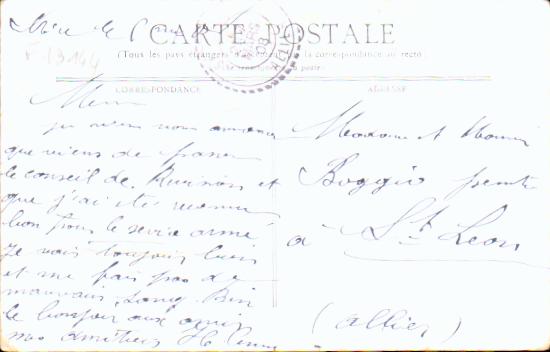 CARTE POSTALE
(Tous les pays étrangers n'acceptent pas la correspondance au recto
CORRESPONDANCE
ADRESSE
je viens vous annoncer
que viens de passer
le conseil de Revision et
que j'ai été reconnu
bon pour le service armé
Je vais toujours bien
et me fais pas de
mauvais Sang. Bien
le bonjour aux amis
mes amitiés
Madame et Monsieur
Boggio
à St Leon
(Allier)